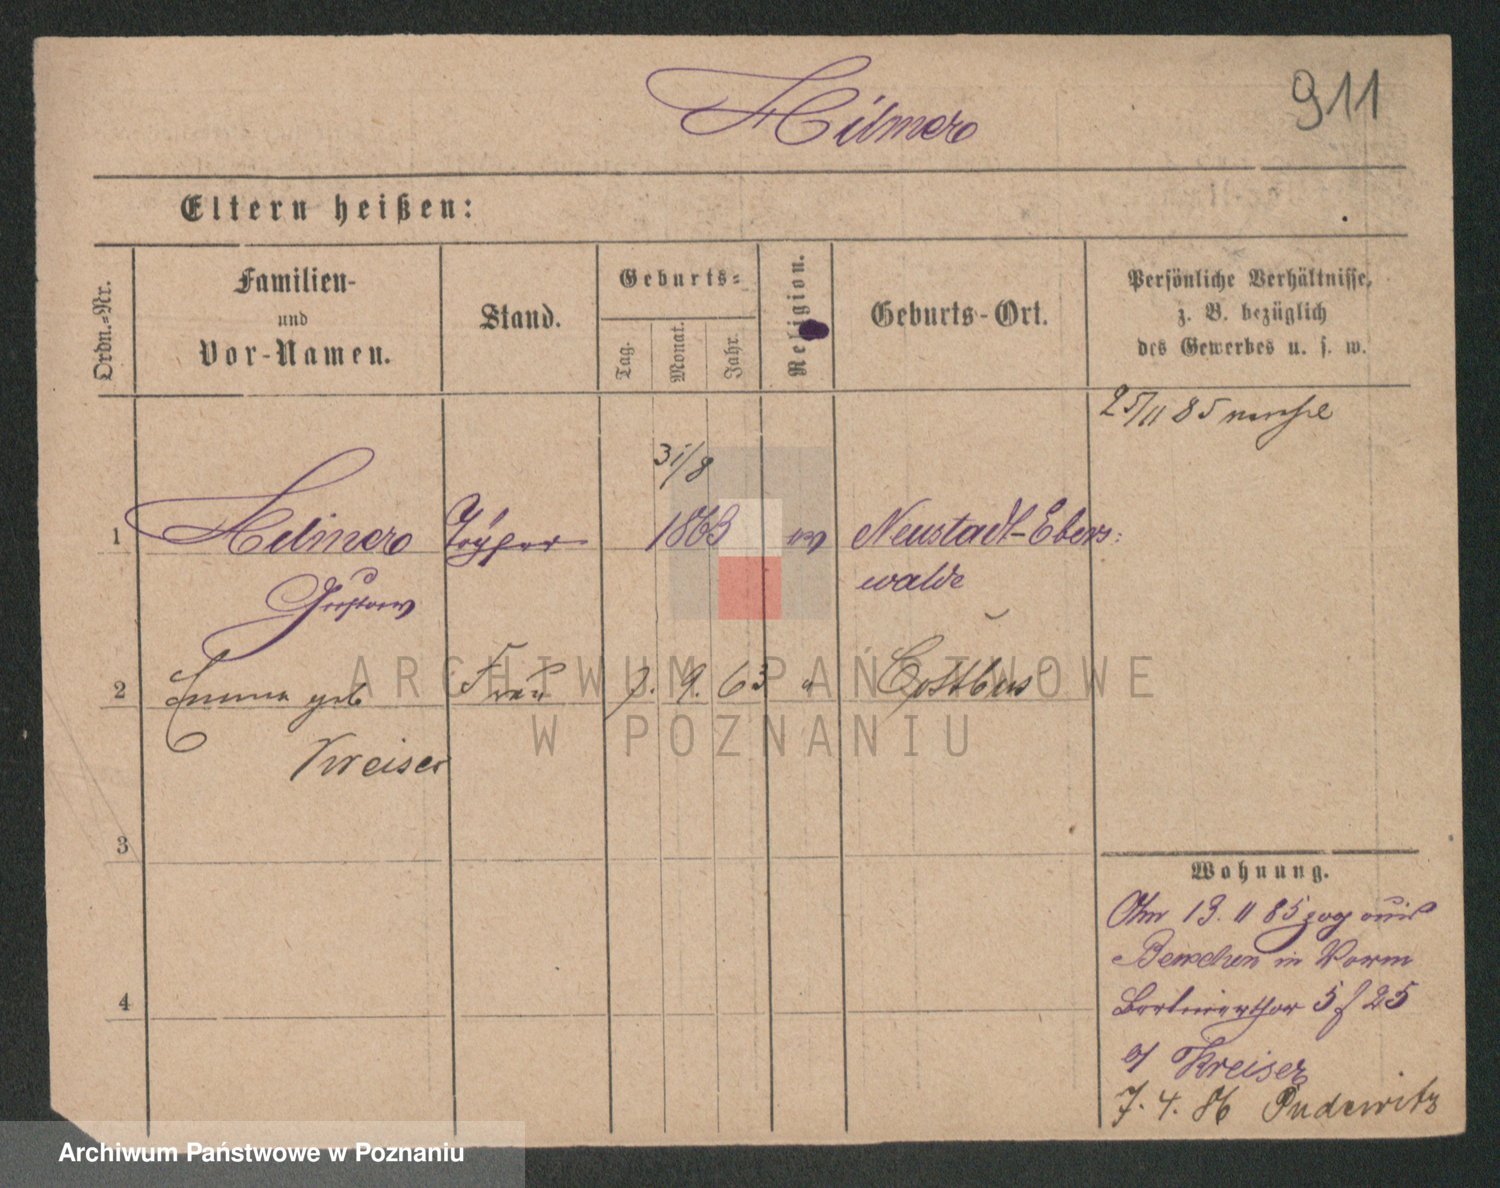 Hilmer
911
Eltern heißen:
Ordn.-Nr.
Familien-
und
Vor-Namen.
Stand.
Geburts-
Tag.
Monat.
Jahr.
Religion.
Geburts-Ort.
Persönliche Verhältnisse,
z. B. bezüglich
des Gewerbes u. s. w.
25/11 85
31/8
1 Hilmer Töpfer 1863 ev Neustadt-Ebers-
Gustav walde
2 Emma geb Frau 7. 9. 63 " Cottbus
Kreiser
3
4
Wohnung.
Am 13. 11 85 zog aus
Bentschen in Vorm
Berlinerthor 5 f 25
b/ Kreiser
7. 4. 86 Pudewitz
ARCHIWUM PAŃSTWOWE
W POZNANIU
Archiwum Państwowe w Poznaniu